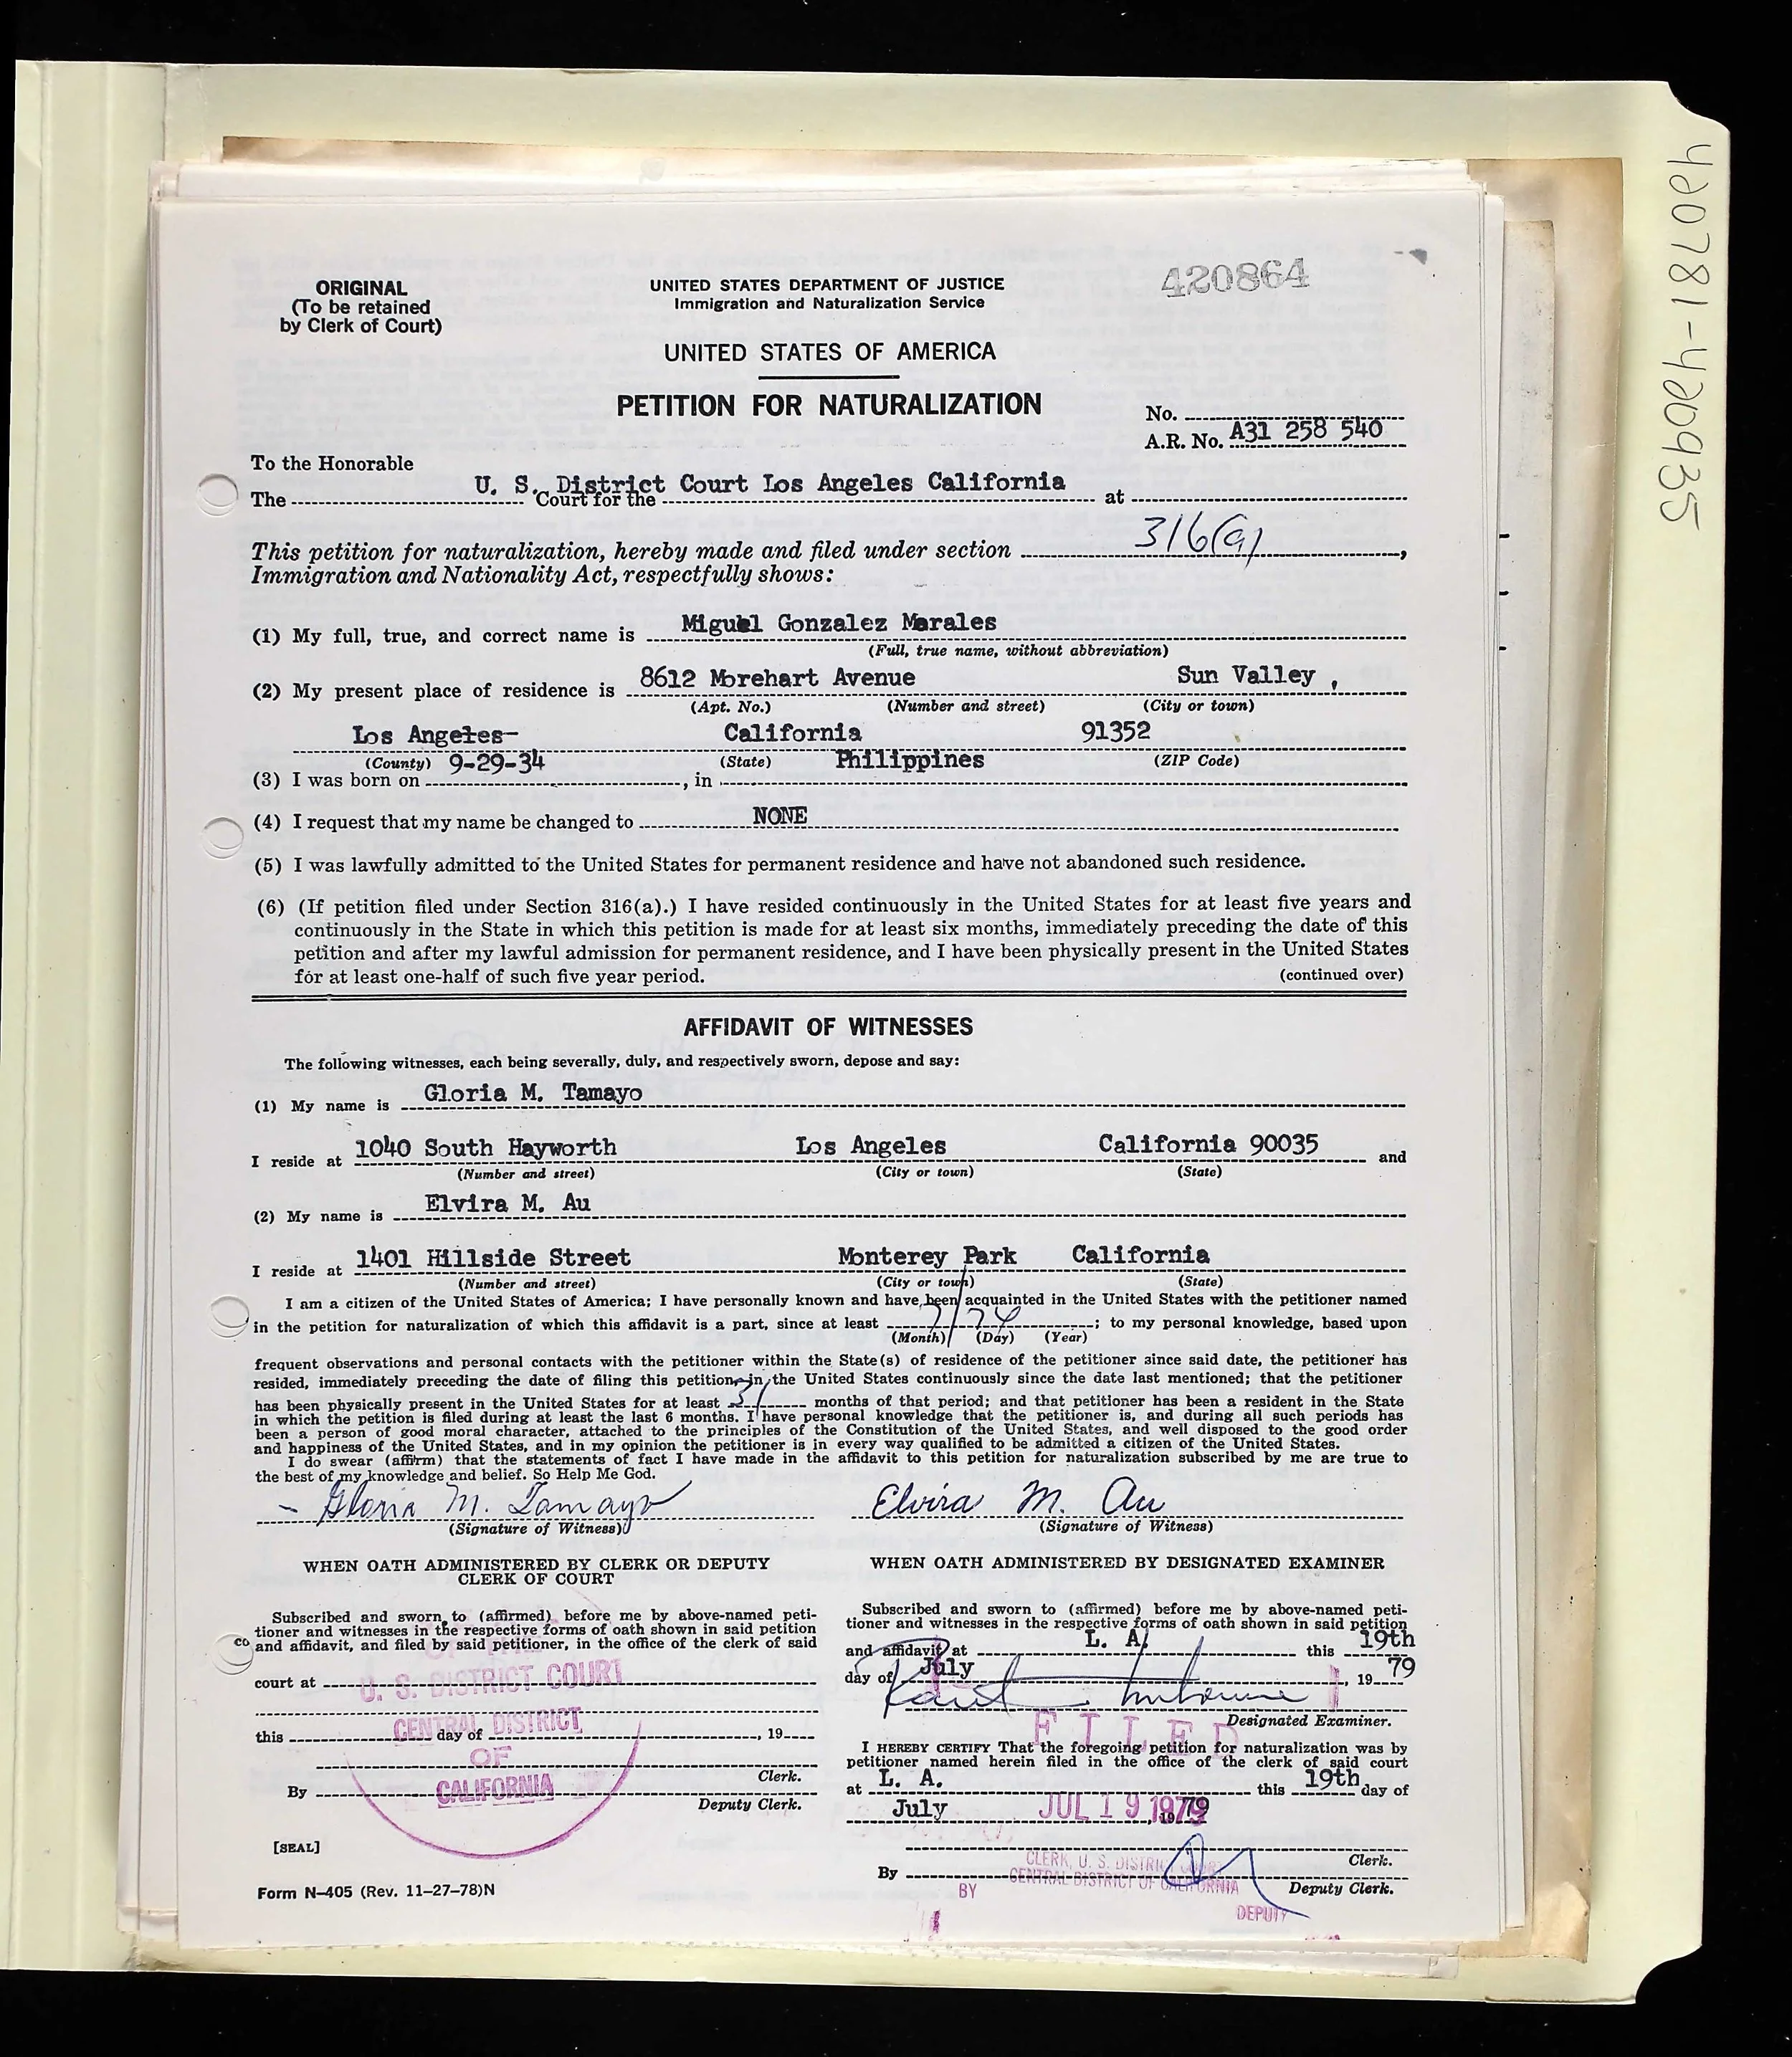 420781-420935
ORIGINAL
(To be retained
by Clerk of Court)
UNITED STATES DEPARTMENT OF JUSTICE
Immigration and Naturalization Service
420864
UNITED STATES OF AMERICA
PETITION FOR NATURALIZATION
No.
A.R. No. A31 258 540
To the Honorable
U. S. District Court Los Angeles California
The Court for the at
This petition for naturalization, hereby made and filed under section 316(a),
Immigration and Nationality Act, respectfully shows:
(1) My full, true, and correct name is Miguel Gonzalez Morales
(Full, true name, without abbreviation)
(2) My present place of residence is 8612 Morehart Avenue Sun Valley ,
(Apt. No.) (Number and street) (City or town)
Los Angeles- California 91352
(County) (State) (ZIP Code)
(3) I was born on 9-29-34, in Philippines
(4) I request that my name be changed to NONE
(5) I was lawfully admitted to the United States for permanent residence and have not abandoned such residence.
(6) (If petition filed under Section 316(a).) I have resided continuously in the United States for at least five years and
continuously in the State in which this petition is made for at least six months, immediately preceding the date of this
petition and after my lawful admission for permanent residence, and I have been physically present in the United States
for at least one-half of such five year period. (continued over)
AFFIDAVIT OF WITNESSES
The following witnesses, each being severally, duly, and respectively sworn, depose and say:
(1) My name is Gloria M. Tamayo
I reside at 1040 South Hayworth Los Angeles California 90035 and
(Number and street) (City or town) (State)
(2) My name is Elvira M. Au
I reside at 1401 Hillside Street Monterey Park California
(Number and street) (City or town) (State)
I am a citizen of the United States of America; I have personally known and have been acquainted in the United States with the petitioner named
in the petition for naturalization of which this affidavit is a part, since at least 7/74; to my personal knowledge, based upon
(Month) (Day) (Year)
frequent observations and personal contacts with the petitioner within the State(s) of residence of the petitioner since said date, the petitioner has
resided, immediately preceding the date of filing this petition, in the United States continuously since the date last mentioned; that the petitioner
has been physically present in the United States for at least 31 months of that period; and that petitioner has been a resident in the State
in which the petition is filed during at least the last 6 months. I have personal knowledge that the petitioner is, and during all such periods has
been a person of good moral character, attached to the principles of the Constitution of the United States, and well disposed to the good order
and happiness of the United States, and in my opinion the petitioner is in every way qualified to be admitted a citizen of the United States.
I do swear (affirm) that the statements of fact I have made in the affidavit to this petition for naturalization subscribed by me are true to
the best of my knowledge and belief. So Help Me God.
Gloria M. Tamayo Elvira M. Au
(Signature of Witness) (Signature of Witness)
WHEN OATH ADMINISTERED BY CLERK OR DEPUTY
CLERK OF COURT
Subscribed and sworn to (affirmed) before me by above-named peti-
tioner and witnesses in the respective forms of oath shown in said petition
co and affidavit, and filed by said petitioner, in the office of the clerk of said
court at U. S. DISTRICT COURT
this CENTRAL DISTRICT day of , 19
OF
Clerk.
By CALIFORNIA
Deputy Clerk.
[SEAL]
Form N-405 (Rev. 11-27-78)N
WHEN OATH ADMINISTERED BY DESIGNATED EXAMINER
Subscribed and sworn to (affirmed) before me by above-named peti-
tioner and witnesses in the respective forms of oath shown in said petition
and affidavit at L. A. this 19th
day of July, 19 79
Designated Examiner.
FILED
I HEREBY CERTIFY That the foregoing petition for naturalization was by
petitioner named herein filed in the office of the clerk of said court
at L. A. this 19th day of
July JUL 19 1979, 19 79
Clerk.
CLERK, U. S. DISTRICT COURT
By CENTRAL DISTRICT OF CALIFORNIA
Deputy Clerk.
BY
DEPUTY